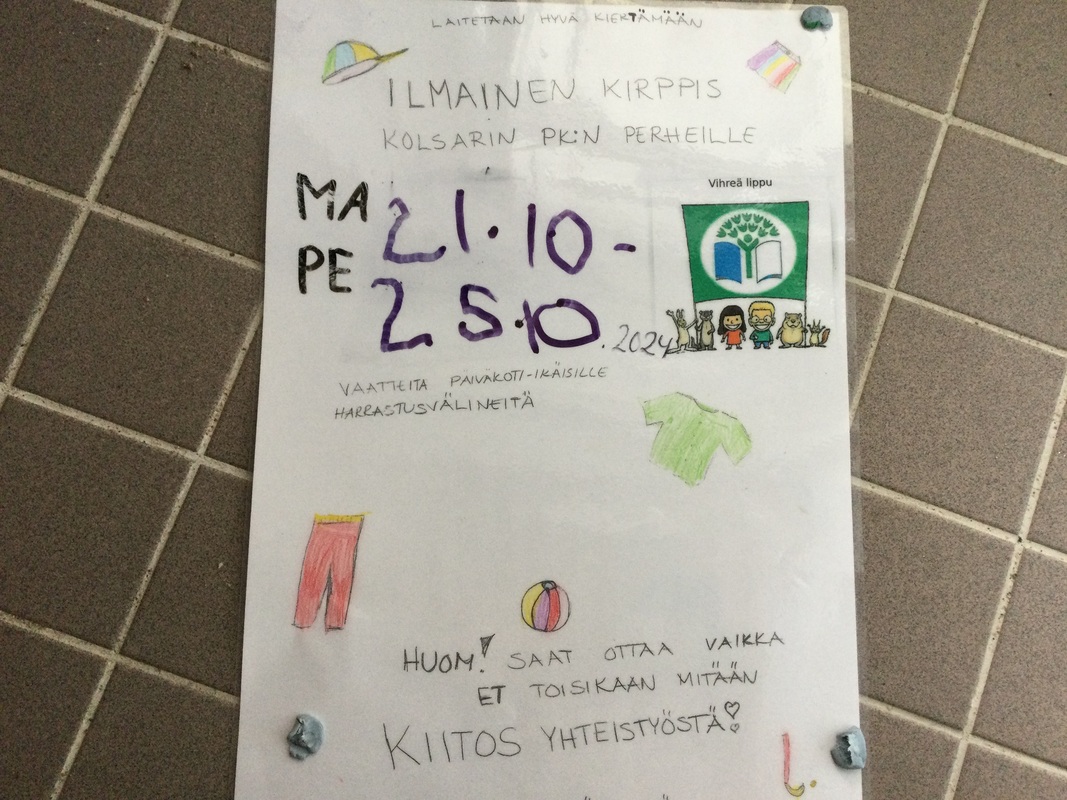 LAITETAAN HYVÄ KIERTÄMÄÄN
ILMAINEN KIRPPIS
KOLSARIN PK:N PERHEILLE
Vihreä lippu
MA 21.10 -
PE 25.10.2024
VAATTEITA PÄIVÄKOTI-IKÄISILLE
HARRASTUSVÄLINEITÄ
HUOM! SAAT OTTAA VAIKKA
ET TOISIKAAN MITÄÄN
KIITOS YHTEISTYÖSTÄ!